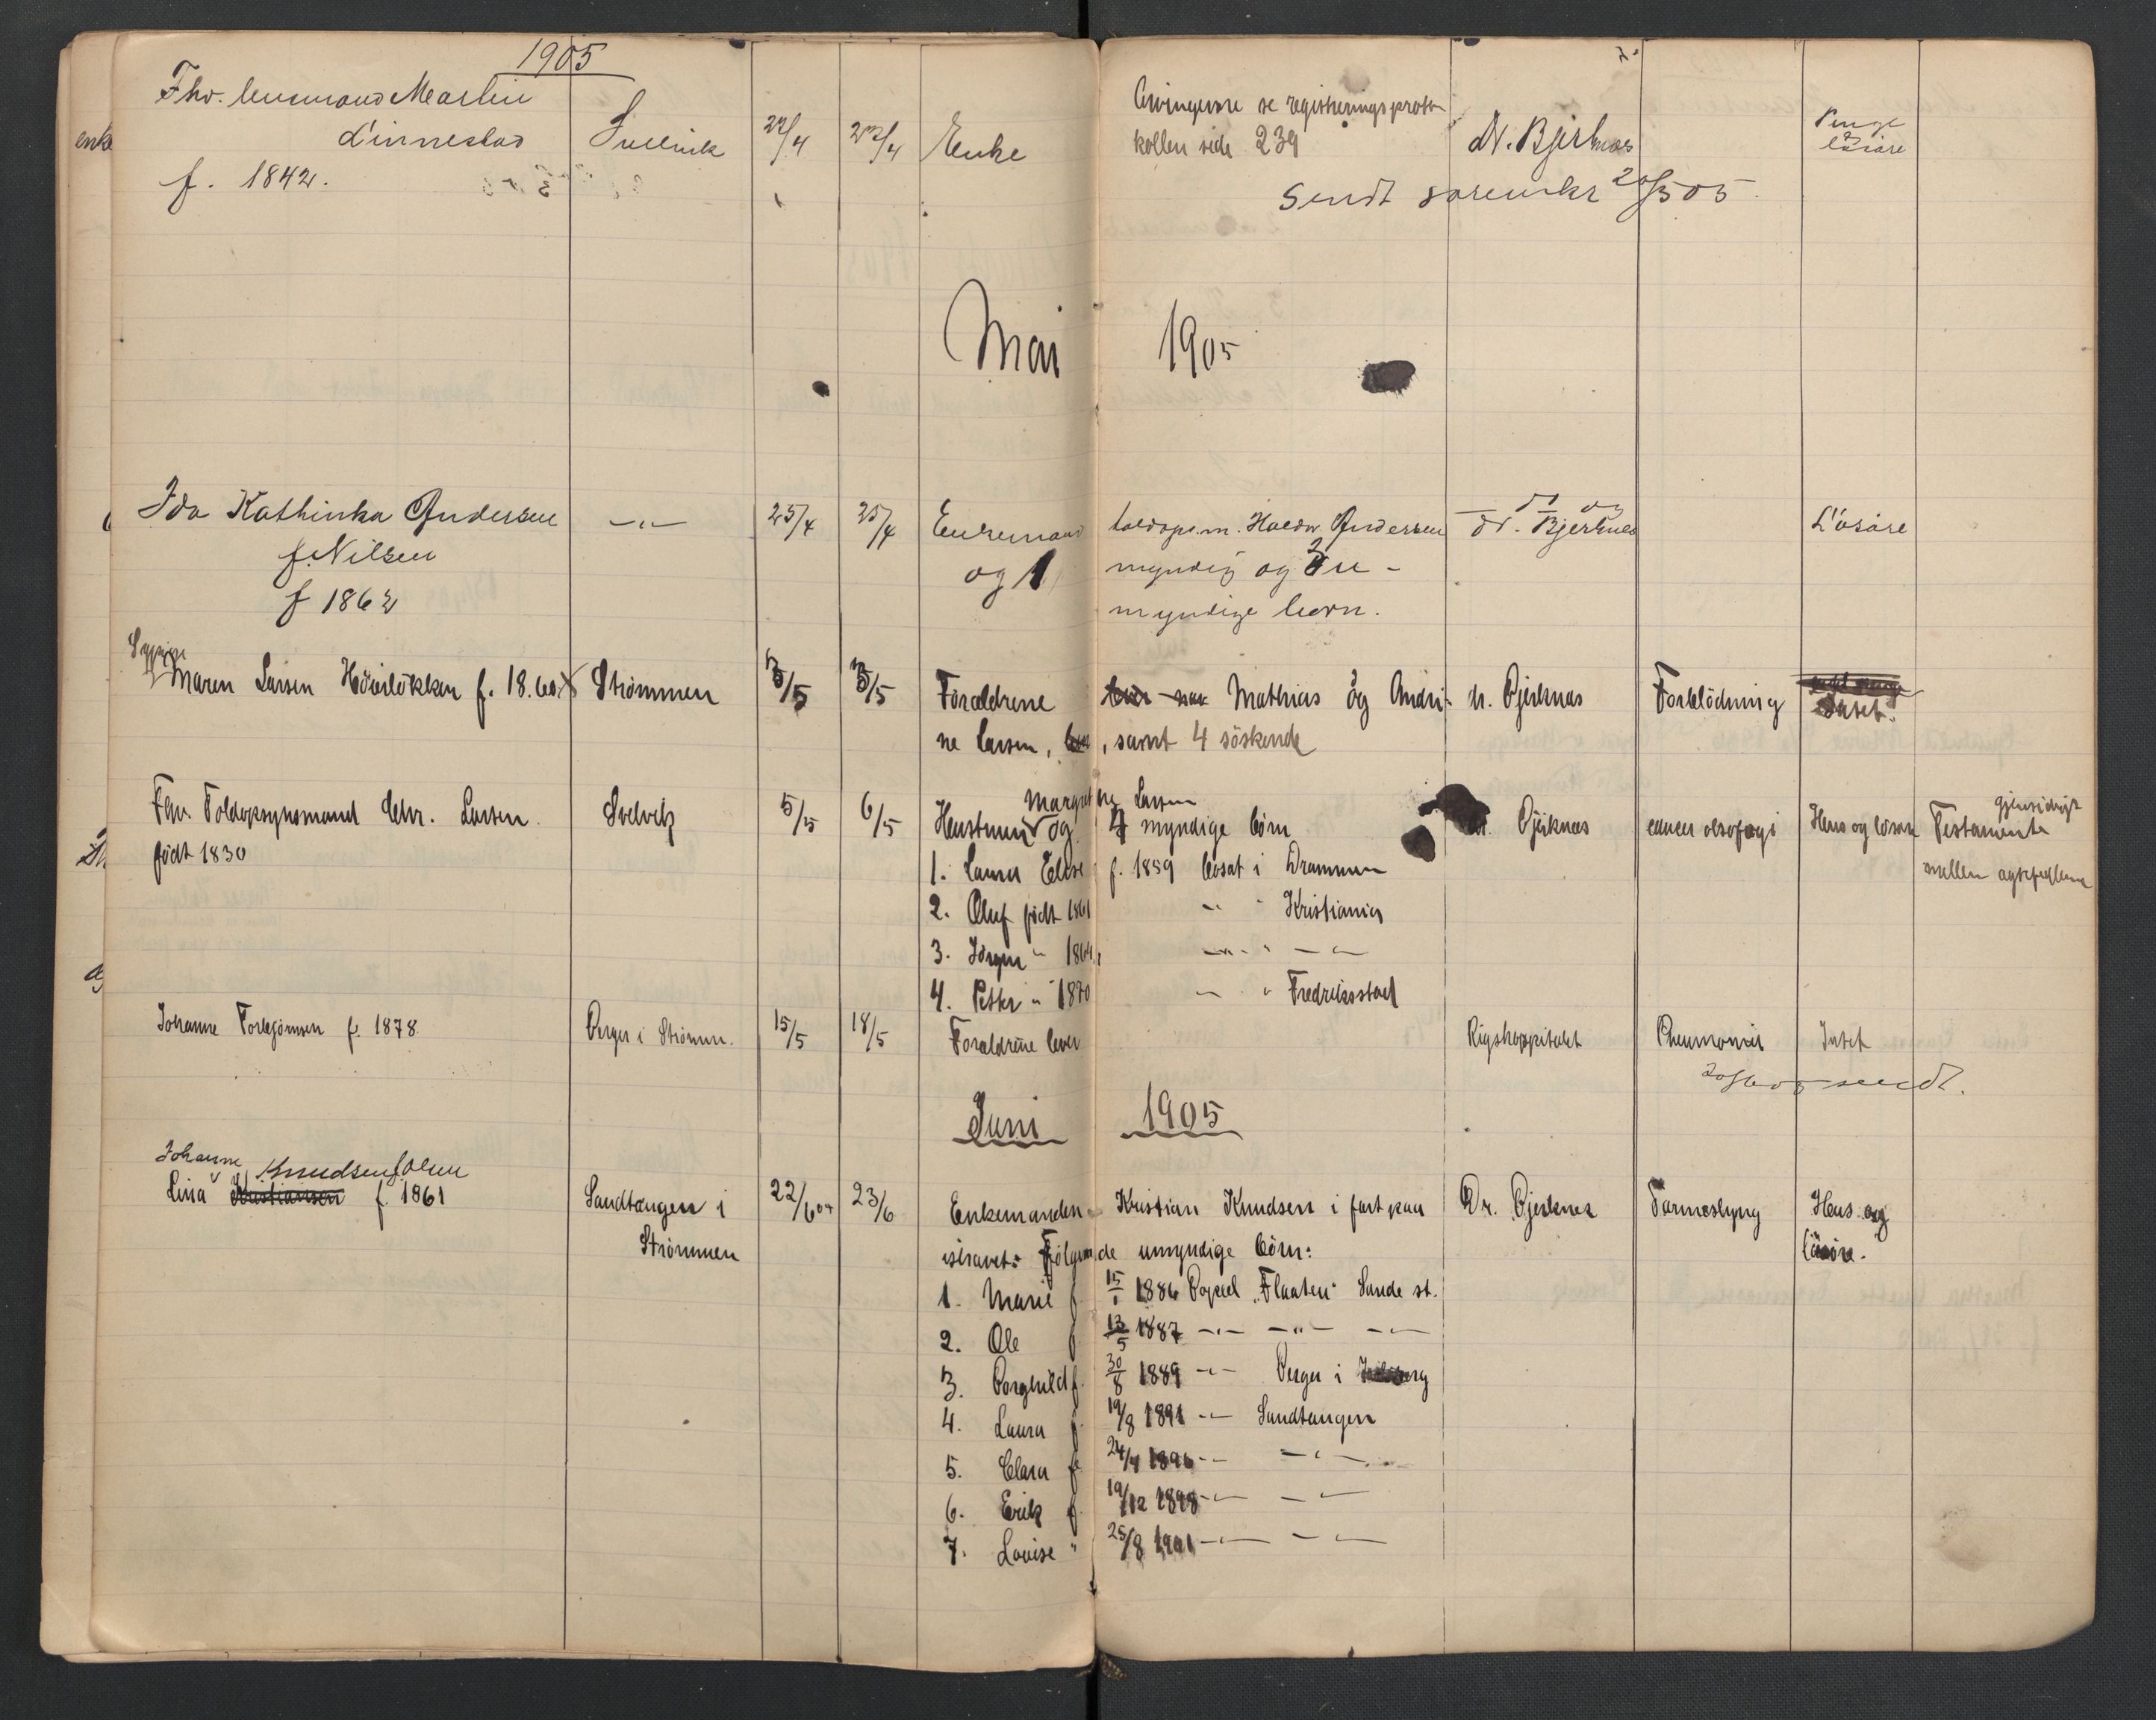 1905
Fhv. lensmand Martin Linnestad f. 1842. Svelvik 22/4 22/4 Enke Arvingerne se registreringsproto-
kollen side 239 Dr. Bjerknæs Penge & løsøre
Sendt sorenskr 20/5 05
Mai 1905
Ida Kathinka Andersen —"— 25/4 25/4 Enkemand toldops.m. Haldor Andersen dr. Bjerknes Løsøre
f. Nilsen og 1 myndig og 3 u-
f 1862 myndige børn.
Maren Larsen Höienlökken f. 18.60. Strømmen 3/5 3/5 Forældrene Mathias og Andri- dr. Bjerknæs Forblödning Intet.
ne Larsen, samt 4 söskende
Margrethe Larsen
Fhv. Toldopsynsmand Chr. Larsen Svelvik 5/5 6/5 Hustruen og 4 myndige börn dr. Bjerknæs cancer oesofagi Hus og løsøre gjensidigt Testamente
født 1830 mellem ægtefellerne
1. Laura Elise f. 1859 bosat i Drammen
2. Oluf født 1861 " " Kristiania
3. Jörgen " 1864 —"— " —"—
4. Petter " 1870 " " Fredriksstad
Johanne Torbjörnsen f. 1878. Berger i Strömm. 15/5 18/5 Forældrene lever Rigshospitalet Pneumoni Intet
sendt.
Juni 1905
Johanne Knudsen f. Olsen
Lina Kristiansen f. 1861 Sandtangen i 22/6 04 23/6 Enkemanden Kristian Knudsen i fart paa Dr. Bjerknes Tarmeslyng Hus og
Strömmen ishavet: Fölgende umyndige börn: lösöre.
1. Marie f. 15/1 1886 Bopæl "Flaaten" Sande st.
2. Ole f 13/5 1887 —"— —"— —"—
3. Borghild f. 30/8 1889 —"— Berger i
4. Laura f. 19/8 1891 —"— Sandtangen
5. Clara f. 24/4 1896 —"— —"—
6. Erik f. 19/12 1898 —"— —"—
7. Lovise " 25/8 1901 —"— —"—